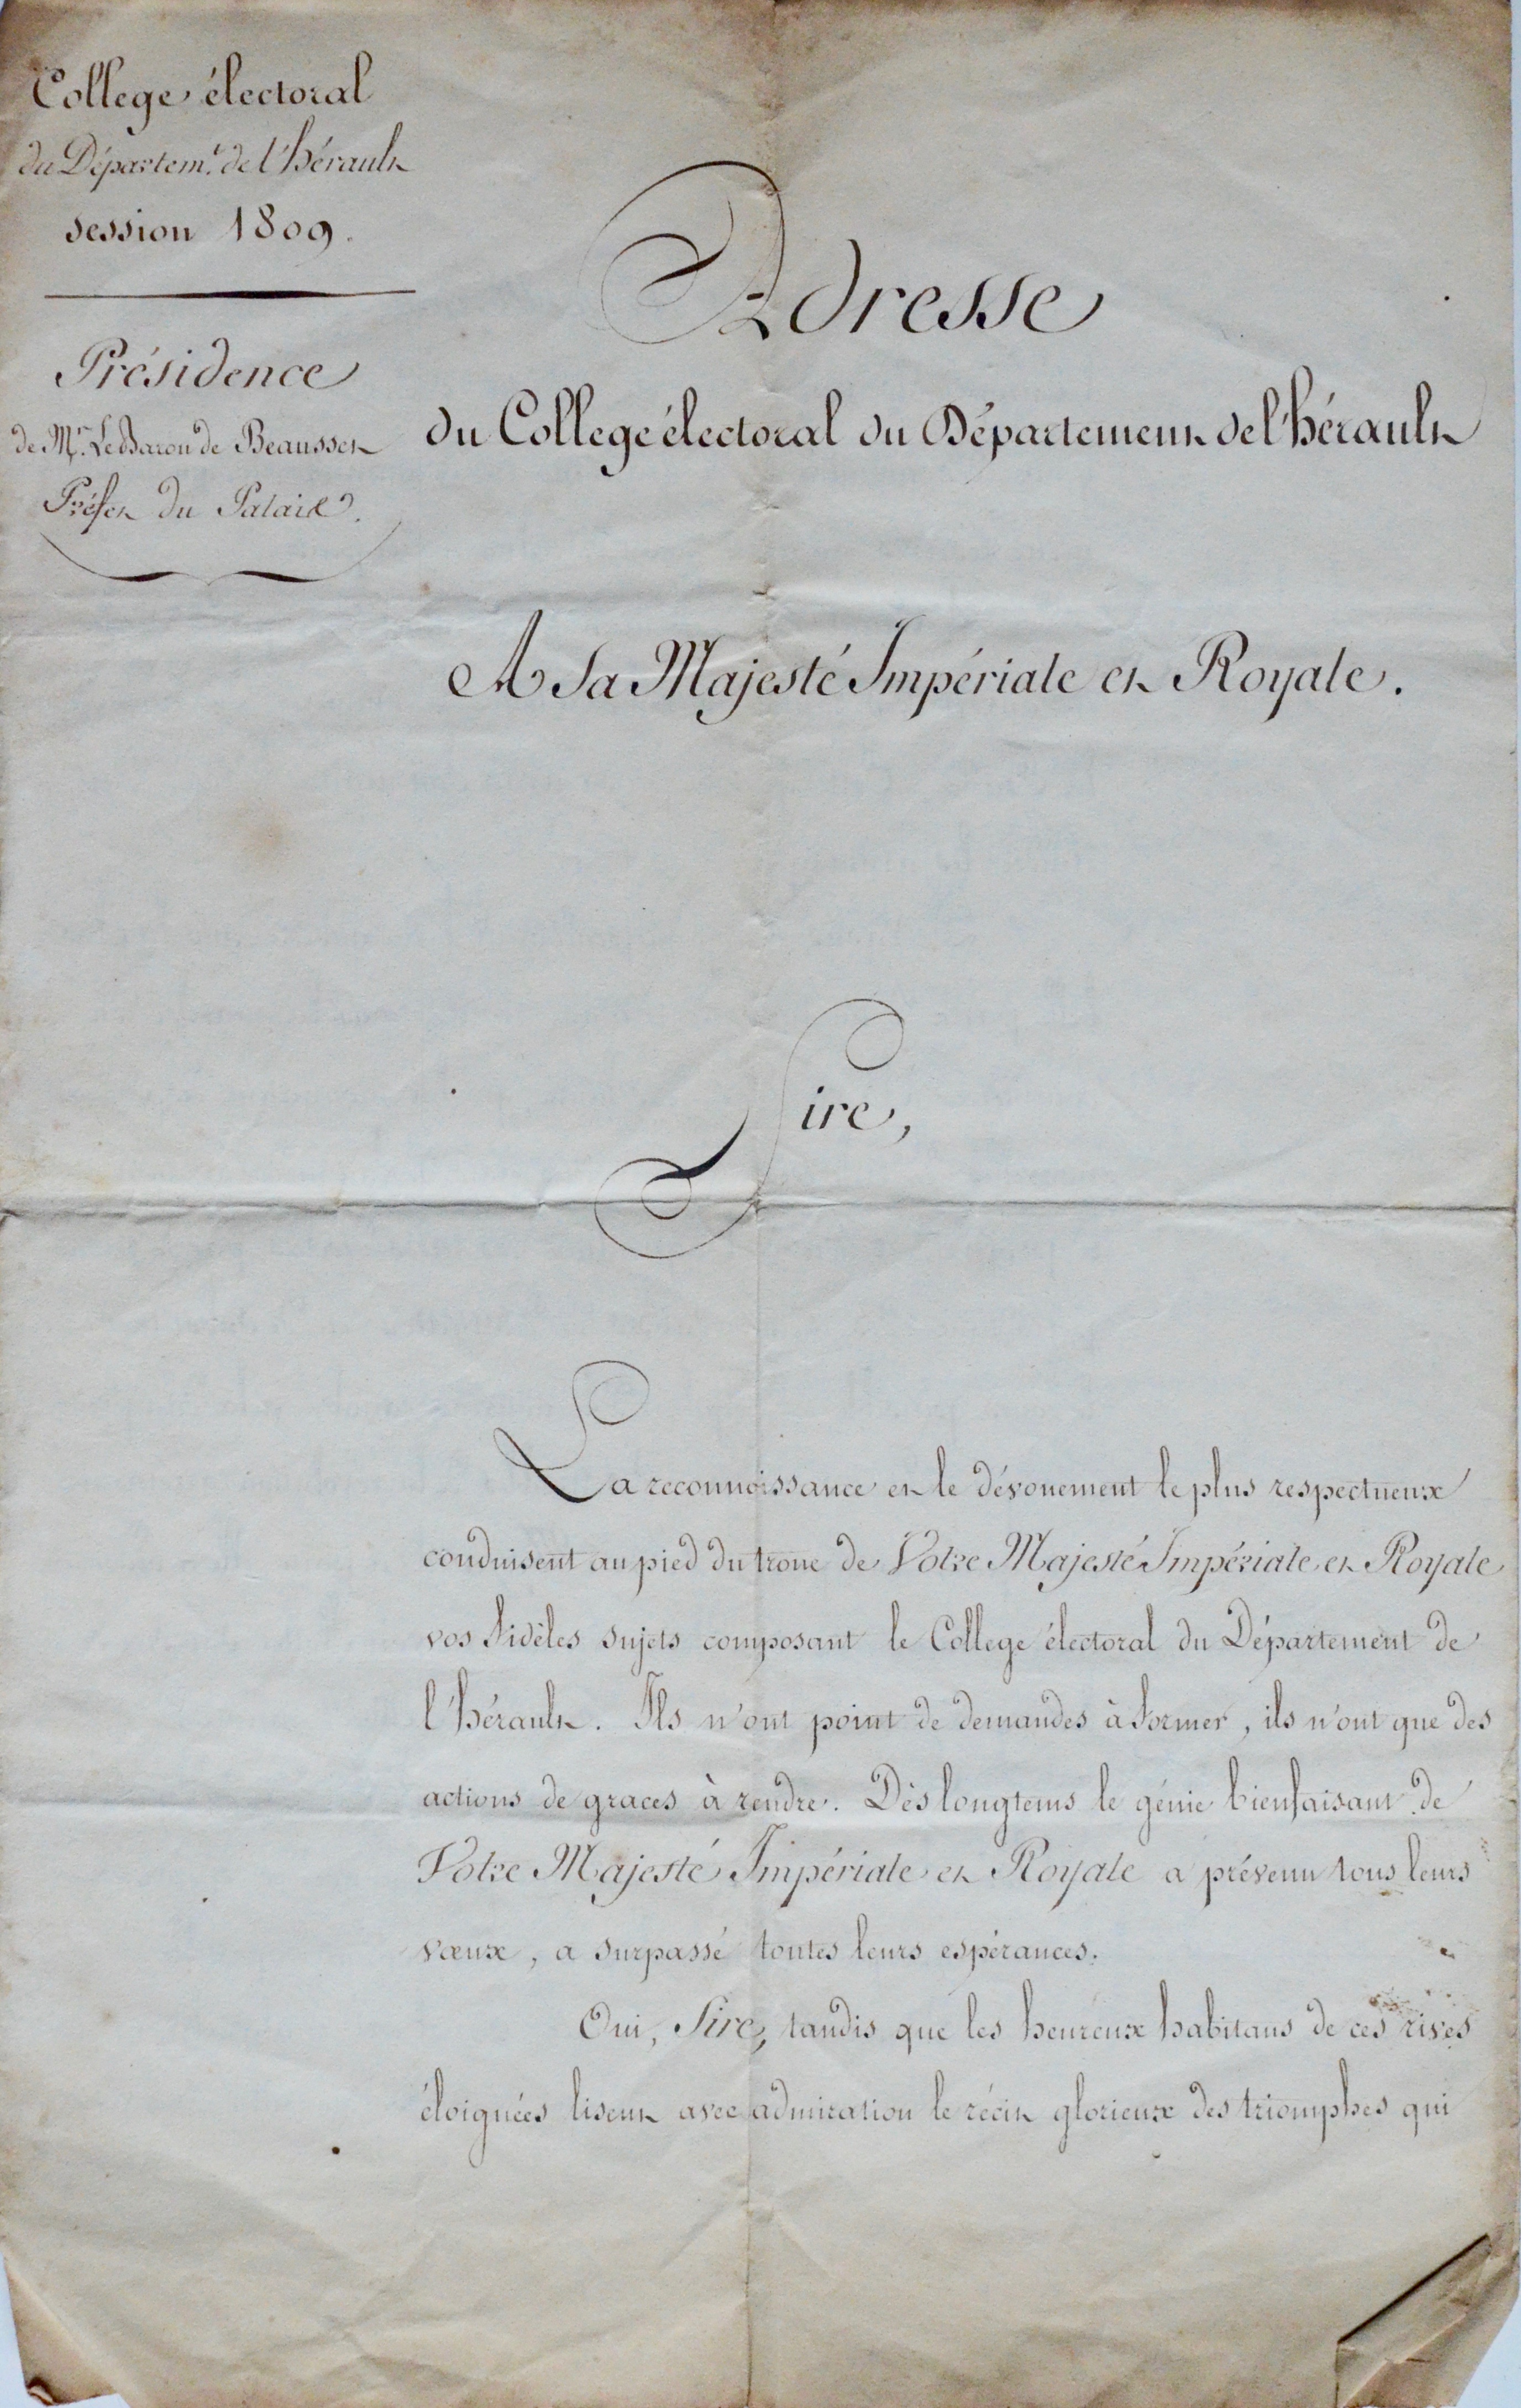 College électoral
du Départem.t de l'hérault
session 1809.
Présidence
de M.r Le Baron de Beausset
Préfet du Palais.
Adresse
du College électoral du Département de l'hérault
A Sa Majesté Impériale et Royale.
Sire,
La reconnoissance et le dévouement le plus respectueux
conduisent au pied du trone de Votre Majesté Impériale et Royale
vos fidèles sujets composant le College électoral du Département de
l'hérault. Ils n'ont point de demandes à former, ils n'ont que des
actions de graces à rendre. Dès longtems le génie bienfaisant de
Votre Majesté Impériale et Royale a prévenu tous leurs
vœux, a surpassé toutes leurs espérances.
Oui, Sire, tandis que les heureux habitans de ces rives
éloignées lisent avec admiration le récit glorieux des triomphes qui